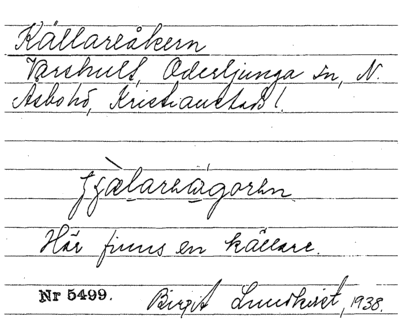 Källareåkern
Varshult, Oderljunga sn, N.
Åsbohd, Kristianstads l.
Här finns en källare.
Nr 5499. Birgit Lundkvist, 1938.